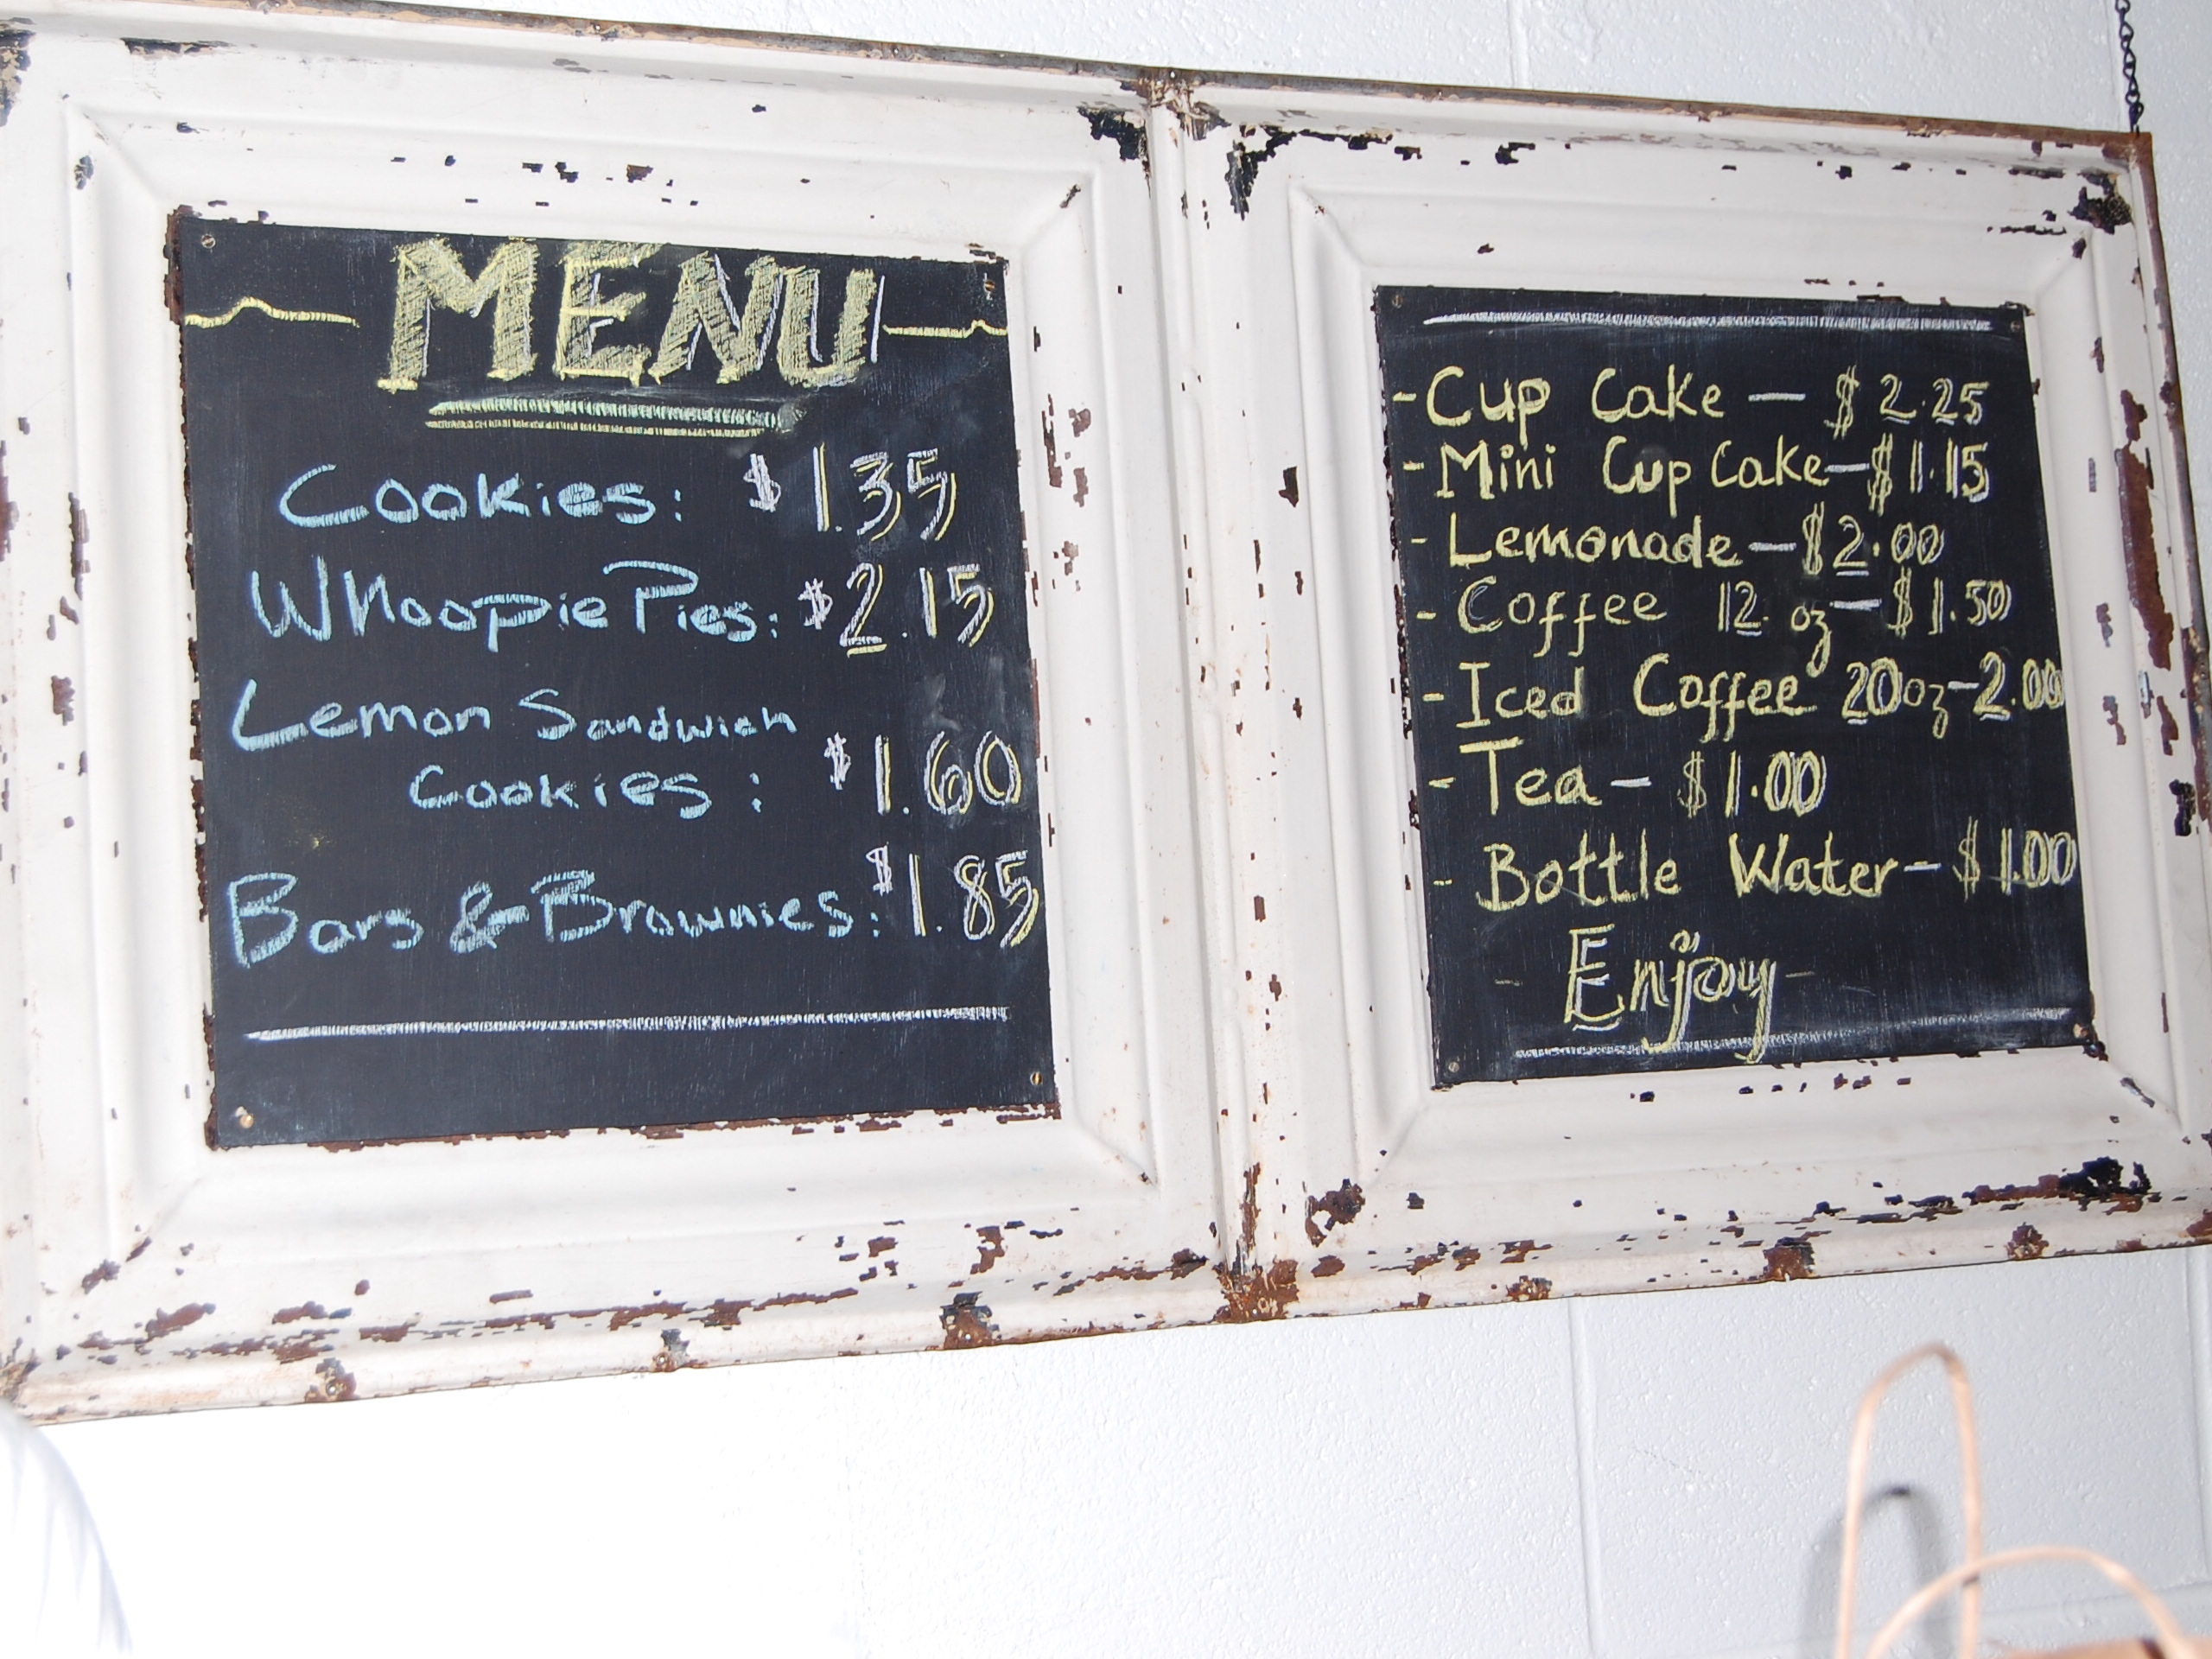 MENU
Cookies: $1.35
Whoopie Pies: $2.15
Lemon Sandwich
Cookies: $1.60
Bars & Brownies: $1.85
- Cup Cake — $2.25
- Mini Cup Cake — $1.15
- Lemonade — $2.00
- Coffee 12 oz — $1.50
- Iced Coffee 20oz - 2.00
- Tea - $1.00
- Bottle Water - $1.00
- Enjoy -